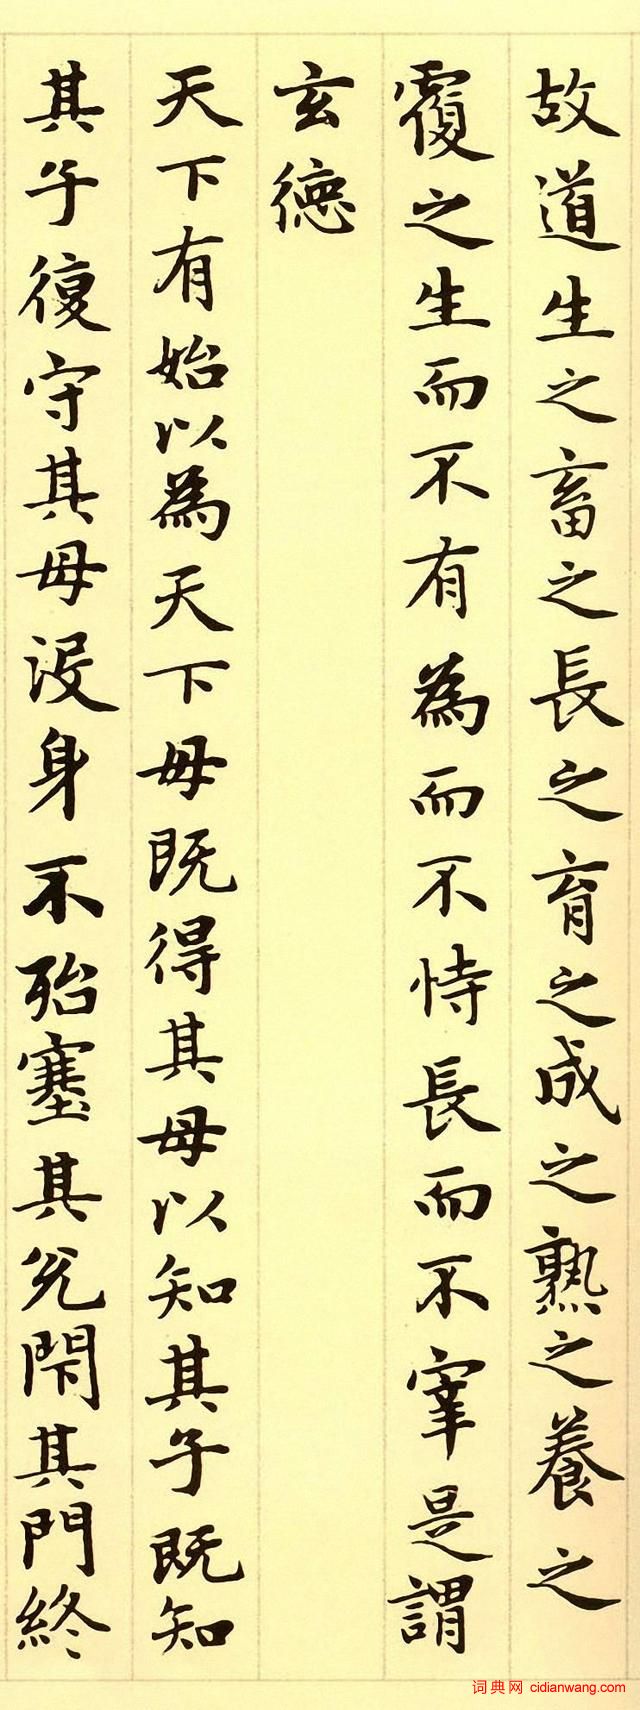 故道生之畜之長之育之成之熟之養之
覆之生而不有為而不恃長而不宰是謂
玄德
天下有始以為天下母既得其母以知其子既知
其子復守其母沒身不殆塞其兌閇其門終
词典网 cidianwang.com